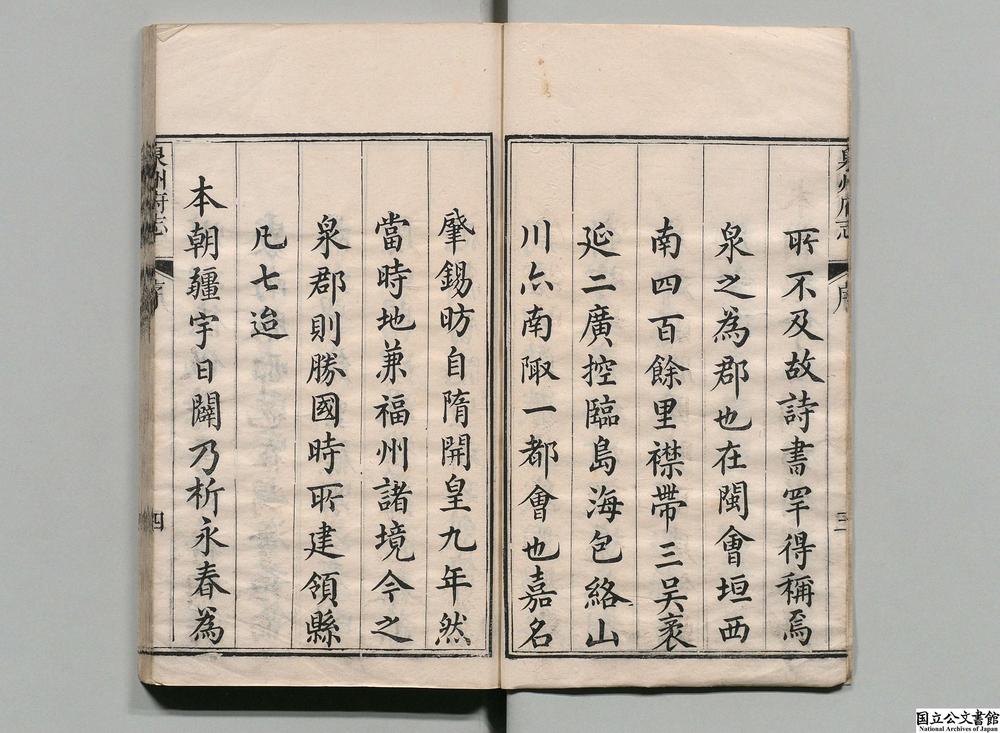 泉州府志
序
三
所不及故詩書罕得稱焉
泉之為郡也在閩會垣西
南四百餘里襟帶三吳袤
延二廣控臨島海包絡山
川亦南陬一都會也嘉名
肇錫昉自隋開皇九年然
當時地兼福州諸境今之
泉郡則勝國時所建領縣
凡七迨
本朝疆宇日闢乃析永春為
泉州府志
序
四
国立公文書館
National Archives of Japan